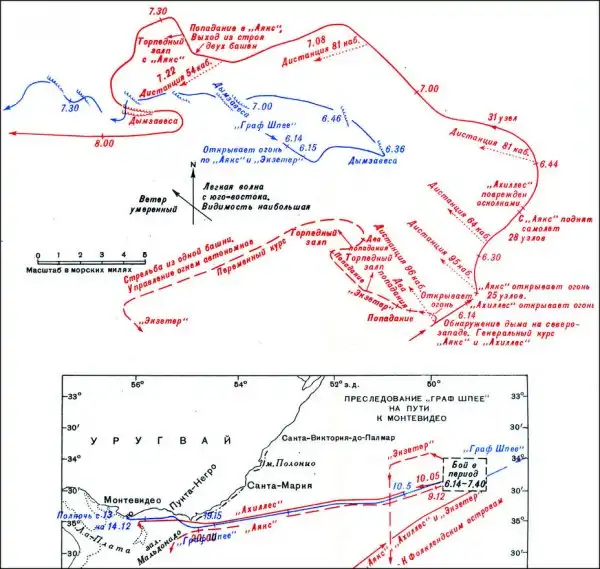 7.30
Попадание в „Аякс“,
Выход из строя
двух башен
Торпедный
залп
с „Аякс“
7.08
Дистанция 81 каб.
7.22
Дистанция 54 каб.
7.00
7.30
Дымзавеса
7.00
„Граф Шпее“
6.46
31 узел
Дистанция 81 каб.
6.44
Дымзавеса
8.00
6.14
6.15
Открывает огонь
по „Аякс“ и „Экзетер“
6.36
Дымзавеса
„Ахиллес“
поврежден
осколками
N
Ветер
умеренный
Легкая волна
с юго-востока.
Видимость наибольшая
Дистанция 64 каб.
С „Аякс“ поднят
самолет
28 узлов
6.30
Дистанция 95 каб.
0 1 2 3 4 5
Масштаб в морских милях
Стрельба из одной башни,
Управление огнем автономное
Переменный курс
Торпедный
залп
Два
попадания
Торпедный
залп
Попадание
Дистанция 96 каб.
Два
попадания
„Экзетер“
Попадание
Открывает
огонь
6.14
„Аякс“ открывает огонь
25 узлов.
„Ахиллес“ открывает огонь
Обнаружение дыма на северо-
западе. Генеральный курс
„Аякс“ и „Ахиллес“
„Экзетер“
56° 54° 52° з.д. 50°
33°
33°
ПРЕСЛЕДОВАНИЕ „ГРАФ ШПЕЕ“
НА ПУТИ
К МОНТЕВИДЕО
30'
30'
УРУГВАЙ
Санта-Виктория-до-Палмар
„Граф Шпее“
34°
34°
„Экзетер“
Бой в
период
6.14–7.40
Пм. Полонио
Санта-Мария
Пункта-Негро
10.05
10.5
9.12
30'
30'
Монтевидео
Полночь с 13
на 14.12
19.15
„Ахиллес“
„Аякс“
35°
35°
Ла-Плата
зал.
Мальдонадо
„Граф Шпее“
20.00
„Аякс“, „Ахиллес“ и „Экзетер“
К Фолклендским островам
30'
30'